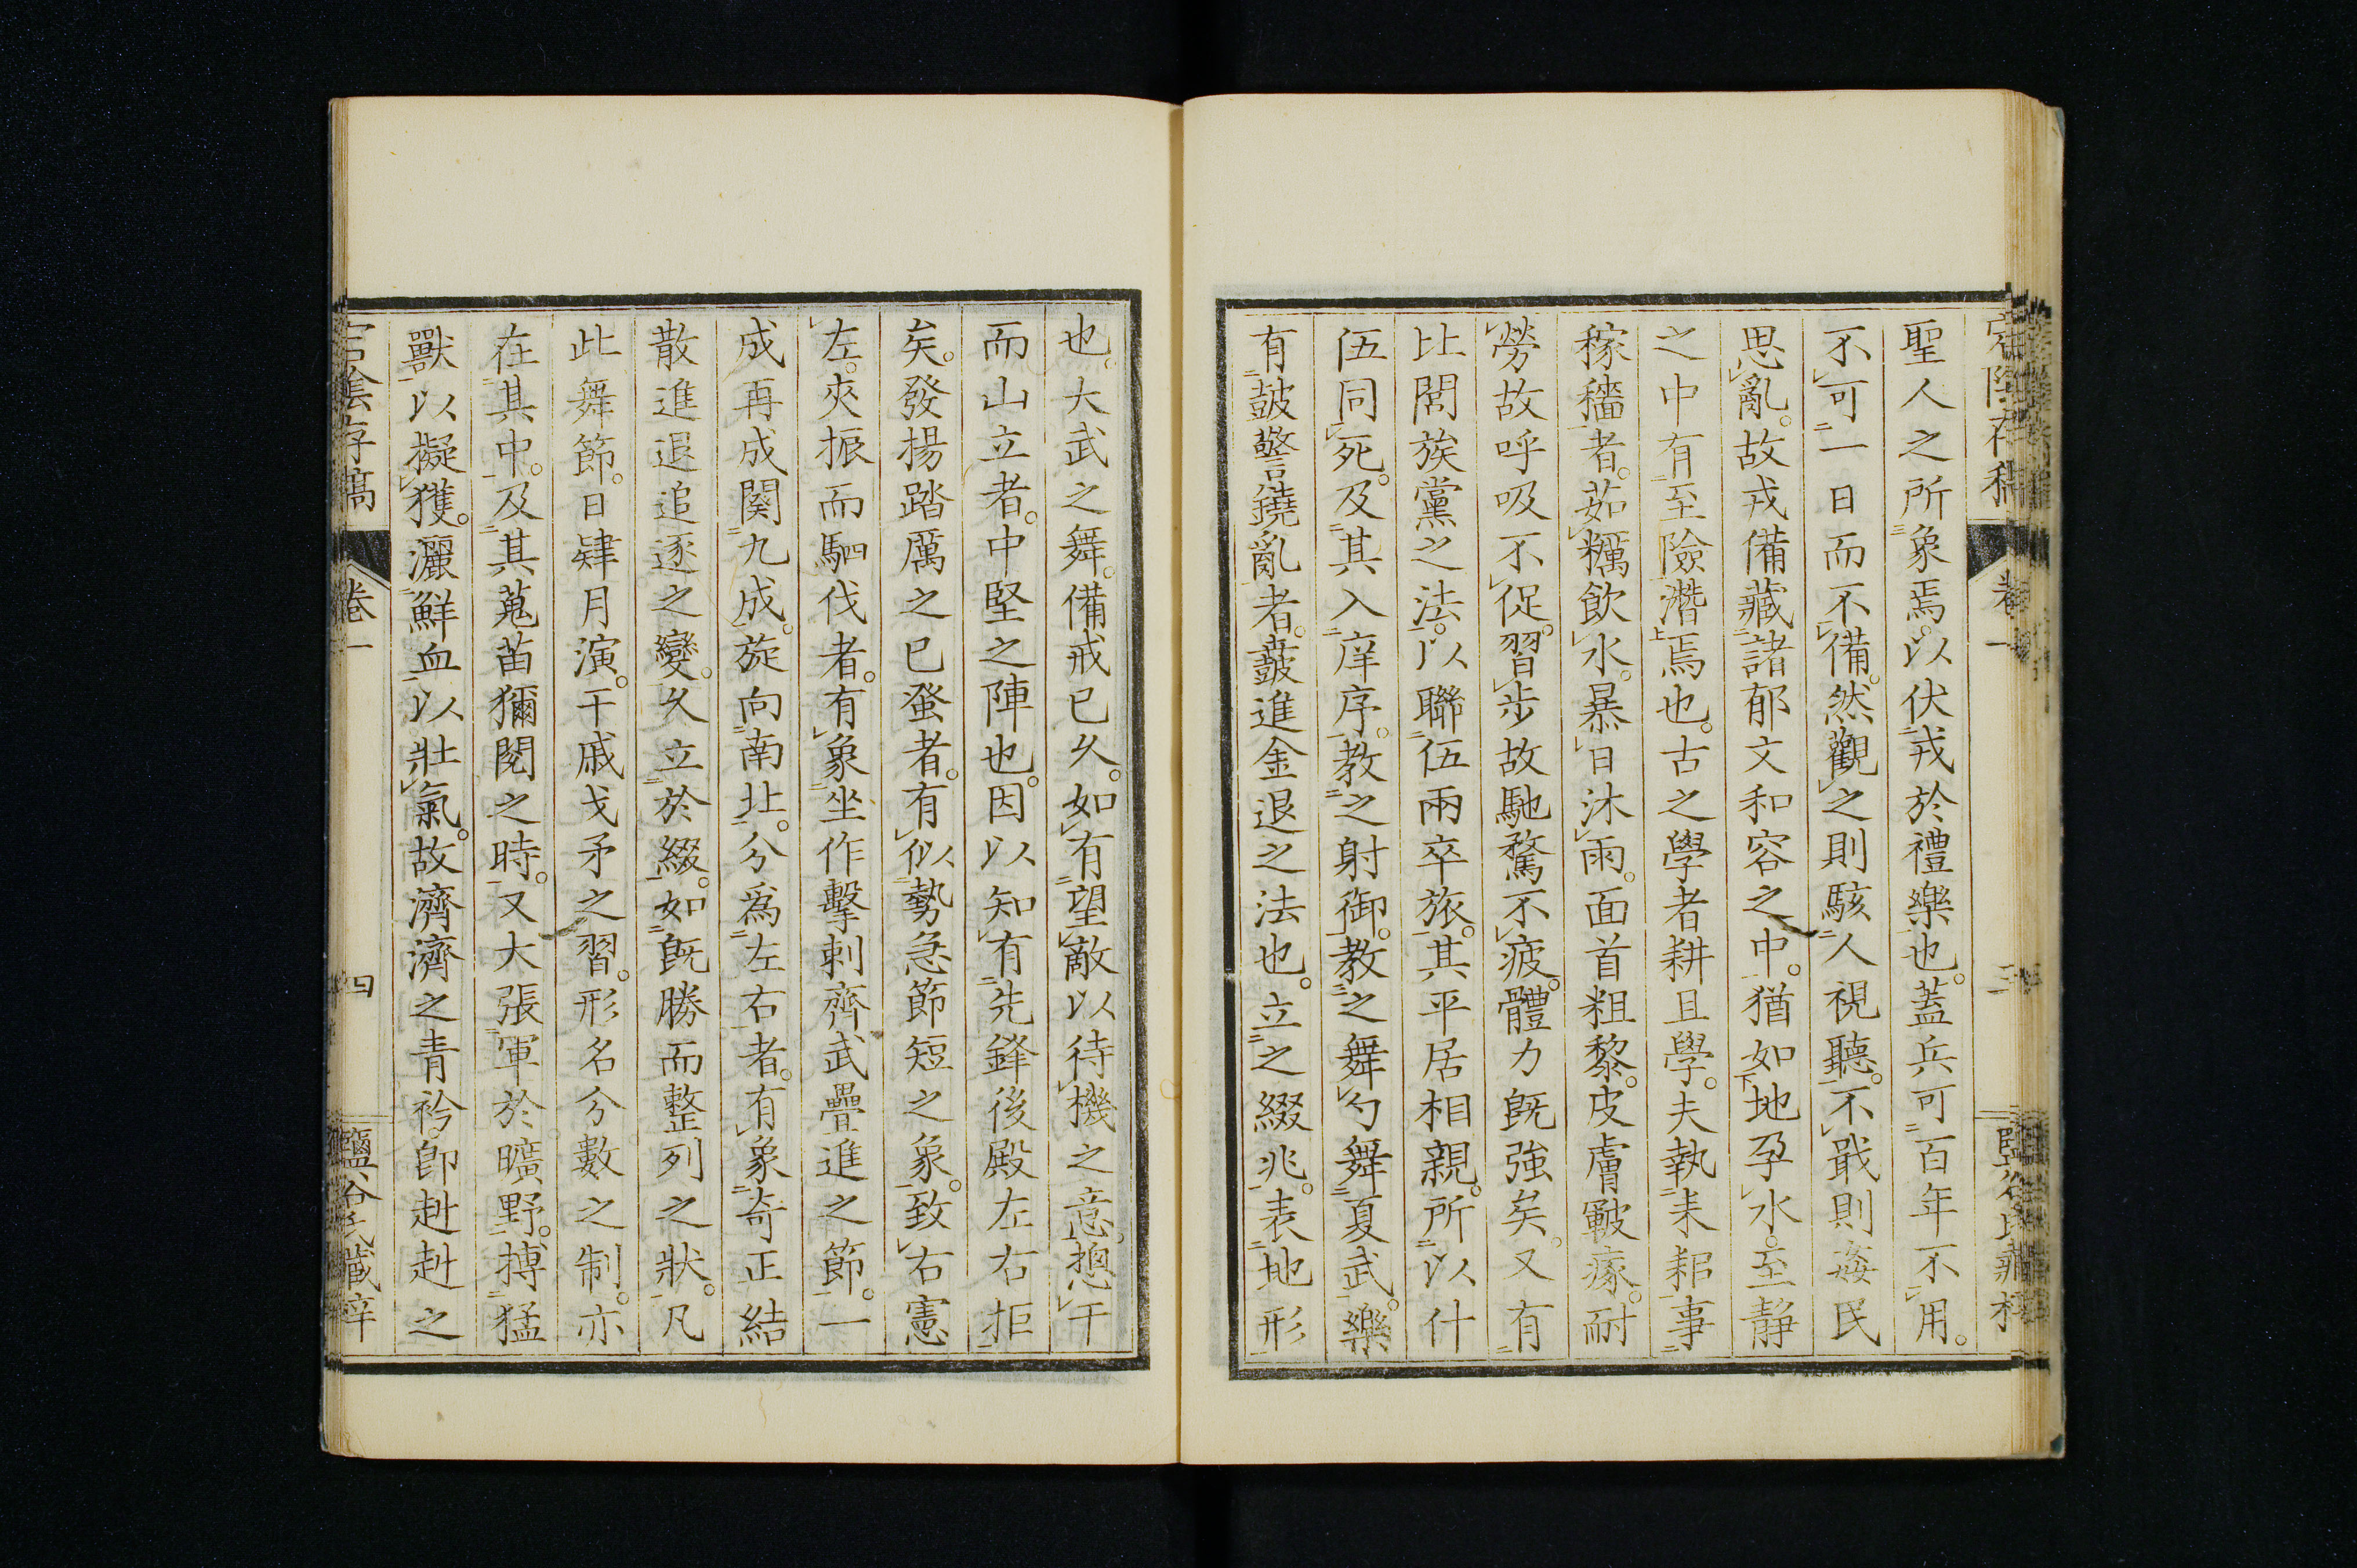 宕陰存稿 卷一 三 鹽谷氏藏梓
聖人之所象焉。以伏戎於禮樂也。蓋兵可百年不用。
不可一日而不備。然觀之則駭人視聽。不戢則姦民
思亂。故戎備藏諸郁文和容之中。猶如地孕水。至靜
之中有至險潛焉也。古之學者耕且學。夫執耒耜事
稼穡者。茹糲飲水。暴日沐雨。面首粗黎。皮膚皸瘃。耐
勞故呼吸不促。習步故馳騖不疲。體力既強矣。又有
比閭族黨之法。以聯伍兩卒旅。其平居相親。所以什
伍同死。及其入庠序。教之射御。教之舞勺舞夏武。樂
有鼓警鐃亂者。鼓進金退之法也。立之綴兆。表地形
也。大武之舞。備戒已久。如有望敵以待機之意。揔干
而山立者。中堅之陣也。因以知有先鋒後殿左右拒
矣。發揚蹈厲之已蚤者。有似勢急節短之象。致右憲
左。夾振而駟伐者。有象坐作擊刺齊武疊進之節。一
成再成闋九成。旋向南北。分爲左右者。有象奇正結
散進退追逐之變。久立於綴。如既勝而整列之狀。凡
此舞節。日肄月演。干戚戈矛之習。形名分數之制。亦
在其中。及其蒐苗獮閱之時。又大張軍於曠野。搏猛
獸以擬獲。灑鮮血以壯氣。故濟濟之青衿。卽赳赳之
宕陰存稿 卷一 四 鹽谷氏藏梓